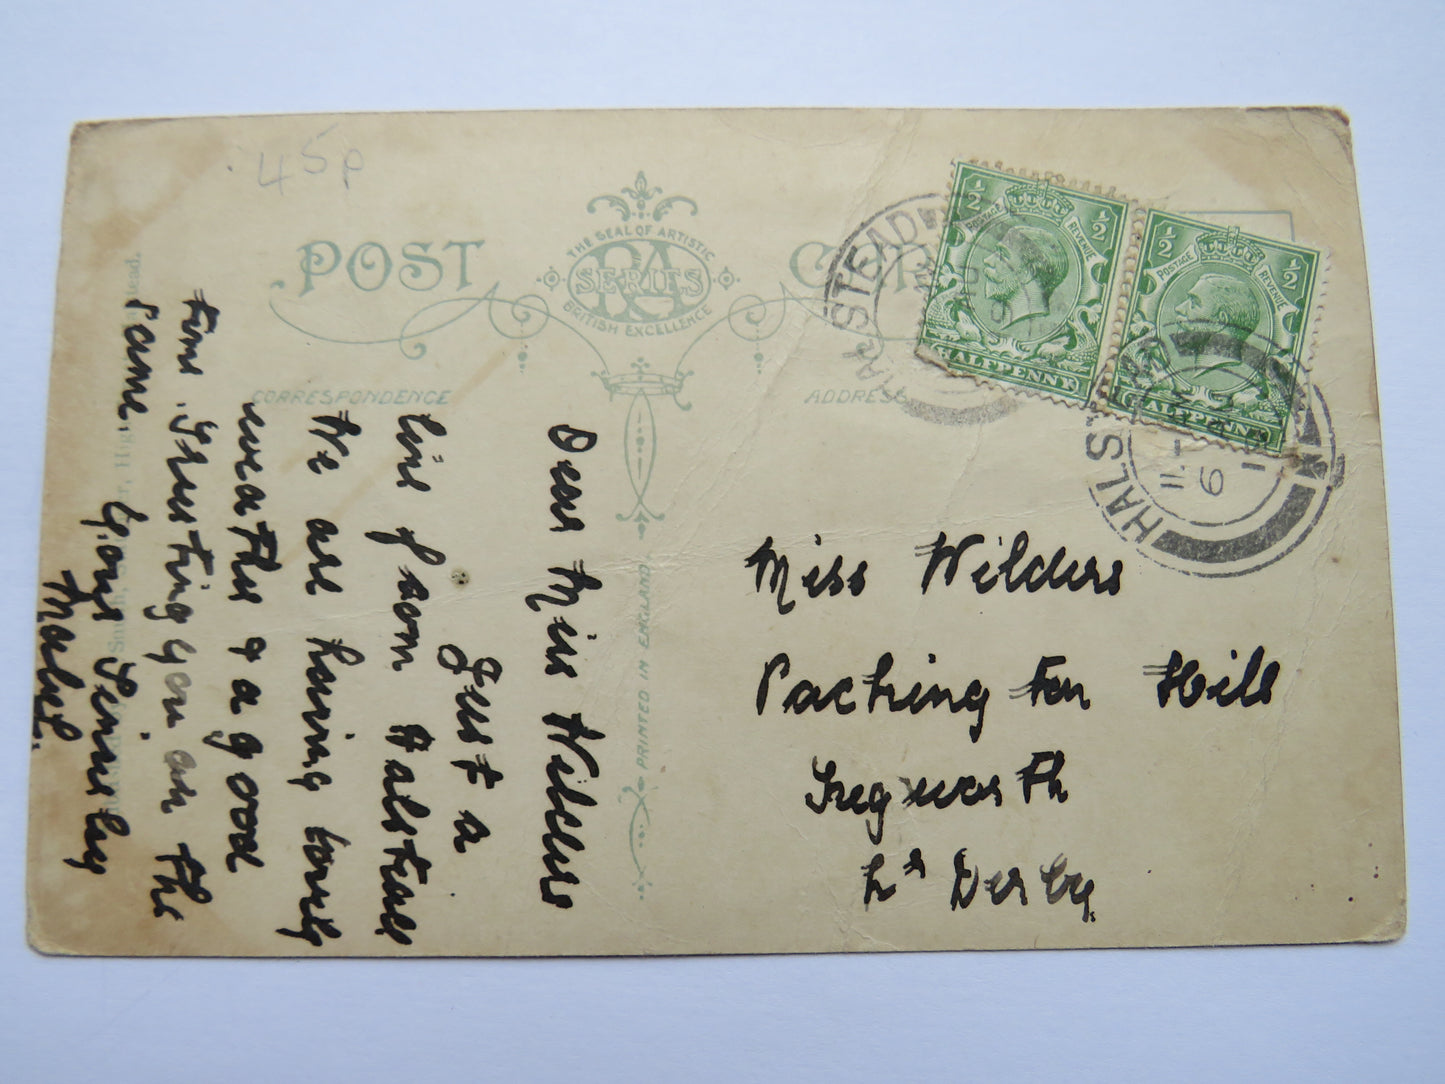 45p
POST CARD
THE SEAL OF ARTISTIC
RA
SERIES
BRITISH EXCELLENCE
CORRESPONDENCE
ADDRESS
PRINTED IN ENGLAND
Dear Miss Wilders
Just a
line from Halstead
We are having lovely
weather & a good
time. Trusting you are the
same. Yours Sincerely
Mabel.
Miss Wilders
Packing Ton Hill
Kegworth
Nr Derby
HALSTEAD
HALS
11-
6
½ ½
POSTAGE REVENUE
HALFPENNY
½ ½
POSTAGE REVENUE
HALFPENNY